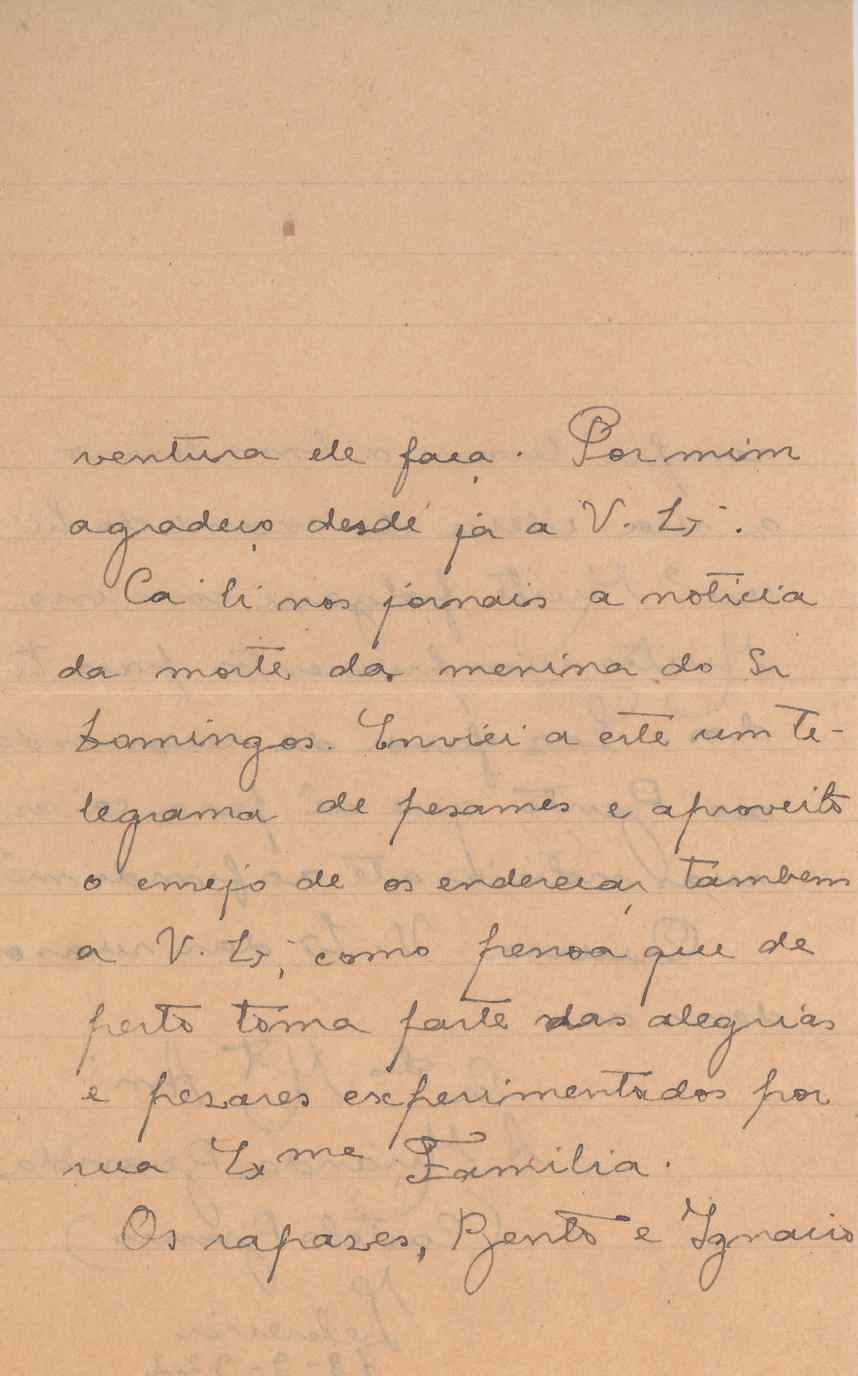 ventura ele faça. Por mim
agradeço desde já a V. Ex.ª.
Cá li nos jornais a noticia
da morte da menina do Sr
Domingos. Enviei a este um te-
legrama de pesames e aproveito
o ensejo de os endereçar tambem
a V. Ex.ª, como pessoa que de
perto toma parte das alegrias
e pezares experimentados por
sua Ex.me Familia.
Os rapazes, Bento e Ignacio